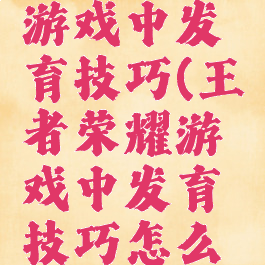 游戏中发
育技巧(王
者荣耀游
戏中发育
技巧怎么